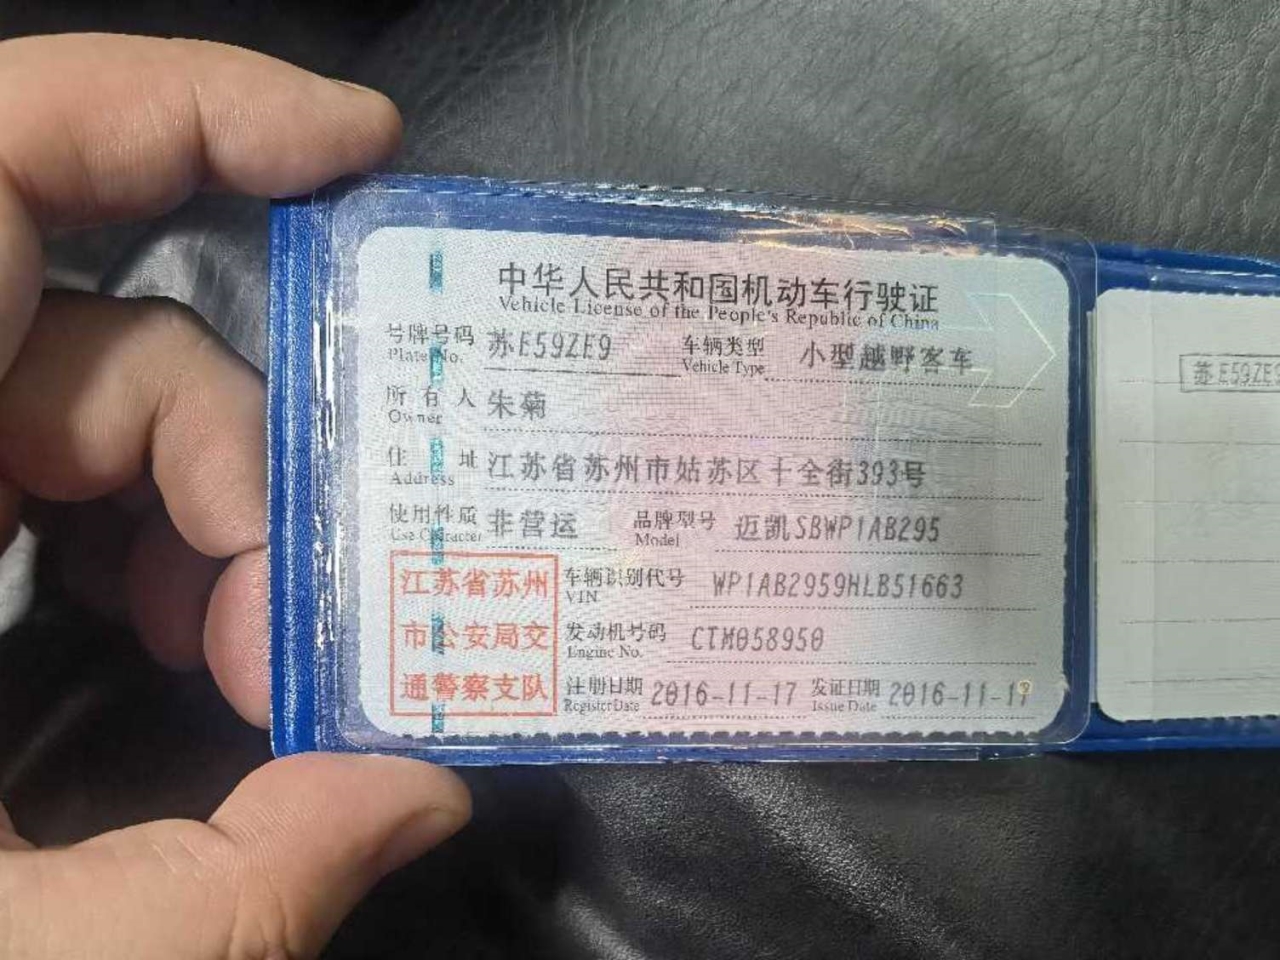 中华人民共和国机动车行驶证
Vehicle License of the People's Republic of China
号牌号码 苏E59ZE9 车辆类型 小型越野客车
Plate No. Vehicle Type
所有人 朱菊
Owner
住址 江苏省苏州市姑苏区十全街393号
Address
使用性质 非营运 品牌型号 迈凯SBWP1AB295
Use Character Model
江苏省苏州
市公安局交
通警察支队
车辆识别代号 WP1AB2959HLB51663
VIN
发动机号码 CTM058950
Engine No.
注册日期 2016-11-17 发证日期 2016-11-17
Register Date Issue Date
苏E59ZE9